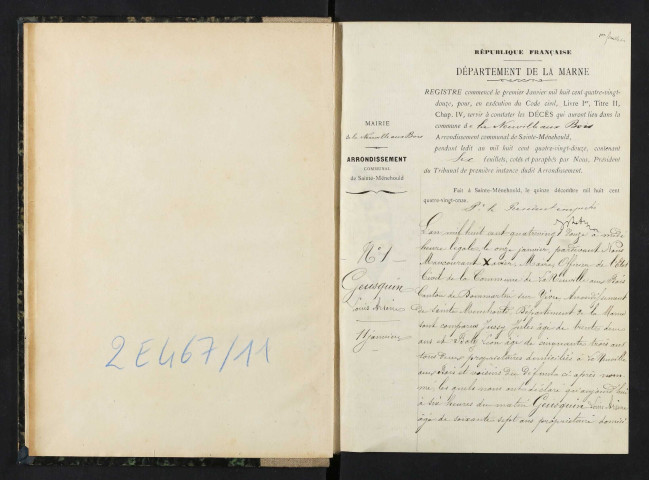 2E467/11
RÉPUBLIQUE FRANÇAISE
DÉPARTEMENT DE LA MARNE
REGISTRE commencé le premier Janvier mil huit cent quatre-vingt-
douze, pour, en exécution du Code civil, Livre Ier, Titre II,
Chap. IV, servir à constater les DÉCÈS qui auront lieu dans la
commune de la Neuville aux Bois
Arrondissement communal de Sainte-Ménehould,
pendant ledit an mil huit cent quatre-vingt-douze, contenant
Six feuillets, cotés et paraphés par Nous, Président
du Tribunal de première instance dudit Arrondissement.
Fait à Sainte-Ménehould, le quinze décembre mil huit cent
quatre-vingt-onze.
Pr le Président
MAIRIE
de la Neuville aux Bois
ARRONDISSEMENT
COMMUNAL
de Sainte-Ménehould
No 1
Guesquin
Louis
11 janvier
L'an mil huit cent quatre vingt douze à
heure légale, le onze janvier, par devant Nous
Maire, Officier de l'État
Civil de la Commune de La Neuville aux Bois
Canton de Dommartin sur Yèvre, Arrondissement
de Sainte Menehould, Département de la Marne
sont comparus Jules âgé de trente deux
ans et Léon âgé de cinquante trois ans
tous deux propriétaires domiciliés à La Neuville
aux Bois et voisins du défunt ci après nom-
mé, les quels nous ont déclaré qu'aujourd'hui
à six heures du matin Guesquin Louis
âgé de soixante sept ans propriétaire domici